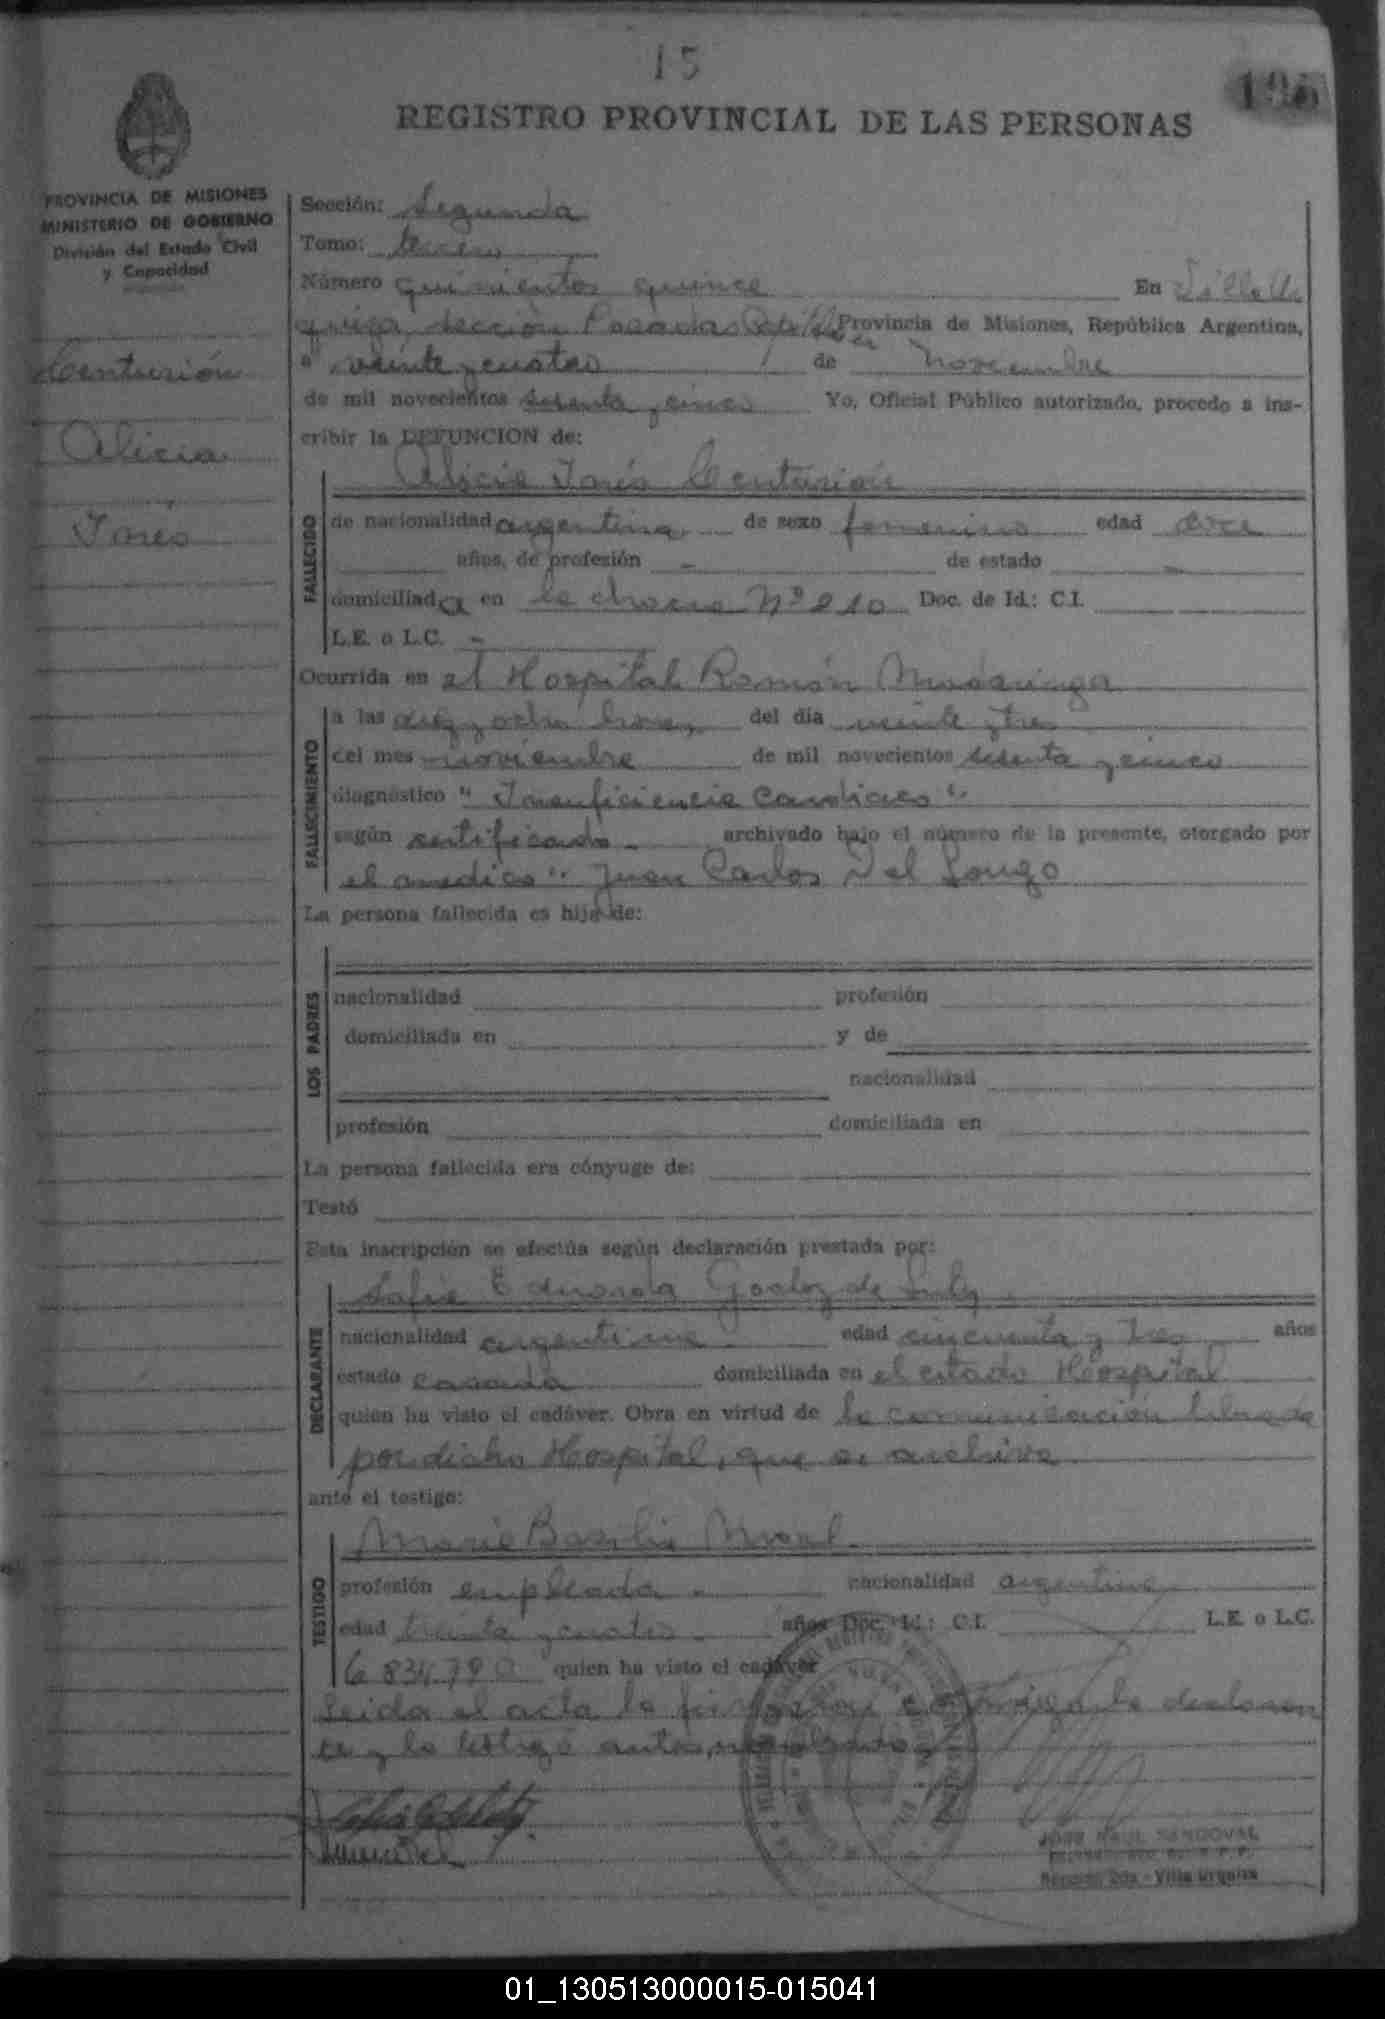 15
195
REGISTRO PROVINCIAL DE LAS PERSONAS
PROVINCIA DE MISIONES
MINISTERIO DE GOBIERNO
División del Estado Civil
y Capacidad
Centurión
Alicia
Sección: Segunda
Tomo: tercero
Número quinientos quince En Villa Ur
quiza, sección Posadas Capital Provincia de Misiones, República Argentina,
a veinte y cuatro de noviembre
de mil novecientos sesenta y cinco Yo, Oficial Público autorizado, procedo a ins-
cribir la DEFUNCION de:
Alicia Centurión
FALLECIDO
de nacionalidad argentina de sexo femenino edad doce
años, de profesión - de estado -
domiciliada en la chacra Nº 210 Doc. de Id.: C.I.
L.E. o L.C. -
Ocurrida en el Hospital Ramón Madariaga
FALLECIMIENTO
a las diez y ocho horas, del día veinte y tres
del mes noviembre de mil novecientos sesenta y cinco
diagnóstico "Insuficiencia Cardiaca"
según certificado archivado bajo el número de la presente, otorgado por
el medico Juan Carlos Del Longo
La persona fallecida es hija de:
LOS PADRES
nacionalidad profesión
domiciliada en y de
nacionalidad
profesión domiciliada en
La persona fallecida era cónyuge de:
Testó
Esta inscripción se efectúa según declaración prestada por:
DECLARANTE
Sofia Eduarda Godoy de
nacionalidad argentina edad cincuenta y tres años
estado casada domiciliada en el citado Hospital
quien ha visto el cadáver. Obra en virtud de la comunicación librada
por dicho Hospital, que se archiva
ante el testigo:
TESTIGO
Maria Basilia
profesión empleada - nacionalidad argentina
edad treinta y cuatro - años Doc. Id.: C.I. L.E. o L.C.
quien ha visto el cadáver
Leida el acta la firman conmigo la declaran
te y la testigo
JOSE RAUL SANDOVAL
Sección 2da - Villa Urquiza
01_130513000015-015041